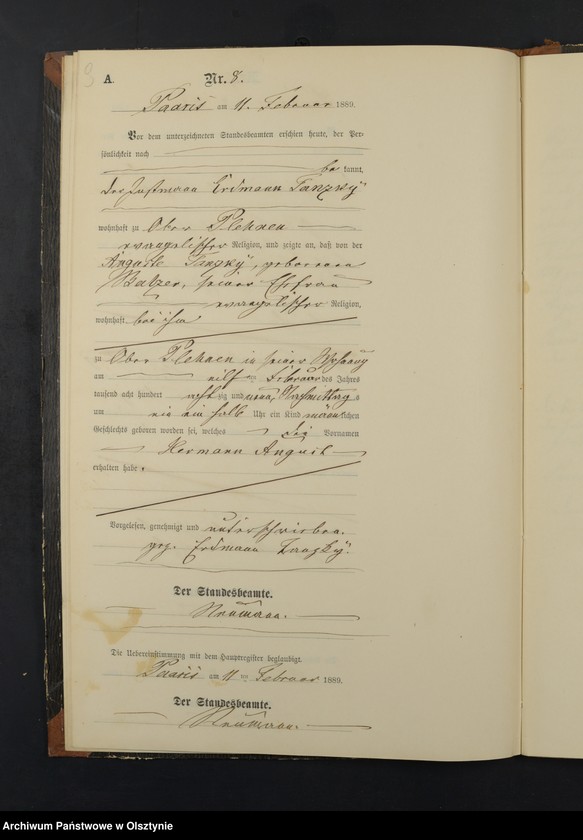 A. Nr. 8.
Paaris am 11. Februar 1889.
Vor dem unterzeichneten Standesbeamten erschien heute, der Per-
sönlichkeit nach
be kannt,
der Instmann Erdmann Tanzky
wohnhaft zu Ober Plehnen
evangelischer Religion, und zeigte an, daß von der
Auguste Tanzky, geborenen
Balzer, seiner Ehefrau
evangelischer Religion,
wohnhaft bei ihm
zu Ober Plehnen in seiner Wohnung
am Februar des Jahres
tausend acht hundert acht zig und neun, Nachmittag s
um ein halb Uhr ein Kind männ lichen
Geschlechts geboren worden sei, welches die Vornamen
Hermann August
erhalten habe.
Vorgelesen, genehmigt und unterschrieben.
gez. Erdmann Tanzky.
Der Standesbeamte.
Neumann.
Die Uebereinstimmung mit dem Hauptregister beglaubigt.
Paaris am 11 ten Februar 1889.
Der Standesbeamte.
Neumann.
Archiwum Państwowe w Olsztynie